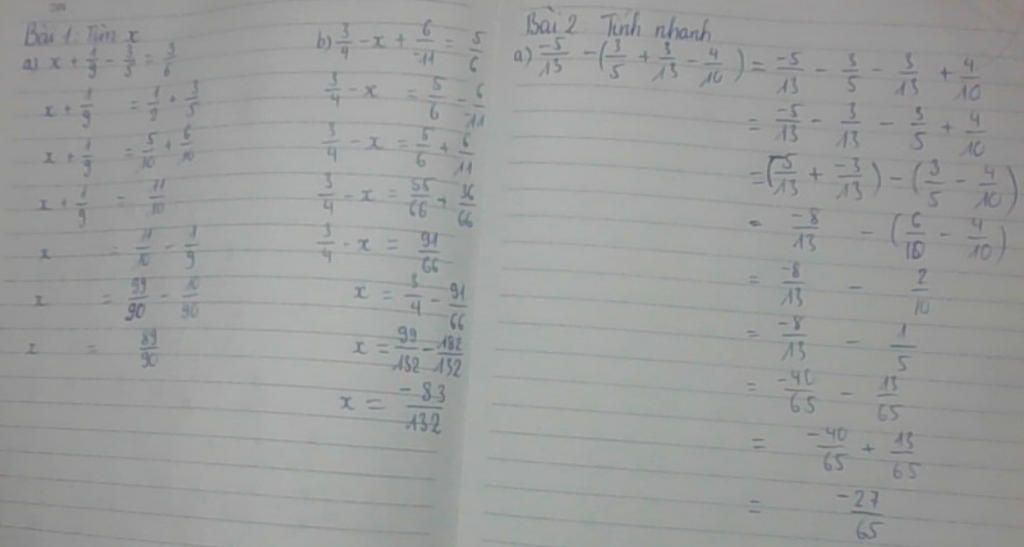 Bài 1: Tìm x
a) x + 1/9 - 3/5 = 3/6
x + 1/9 = 1/2 + 3/5
x + 1/9 = 5/10 + 6/10
x + 1/9 = 11/10
x = 11/10 - 1/9
x = 99/90 - 10/90
x = 89/90
b) 3/4 - x + 6/-11 = 5/6
3/4 - x = 5/6 - 6/-11
3/4 - x = 5/6 + 6/11
3/4 - x = 55/66 + 36/66
3/4 - x = 91/66
x = 3/4 - 91/66
x = 99/132 - 182/132
x = -83/132
Bài 2 Tính nhanh
a) -5/13 - (3/5 + 3/13 - 4/10) = -5/13 - 3/5 - 3/13 + 4/10
= -5/13 - 3/13 - 3/5 + 4/10
= (-5/13 + -3/13) - (3/5 - 4/10)
= -8/13 - (6/10 - 4/10)
= -8/13 - 2/10
= -8/13 - 1/5
= -40/65 - 13/65
= -40/65 + 13/65
= -27/65